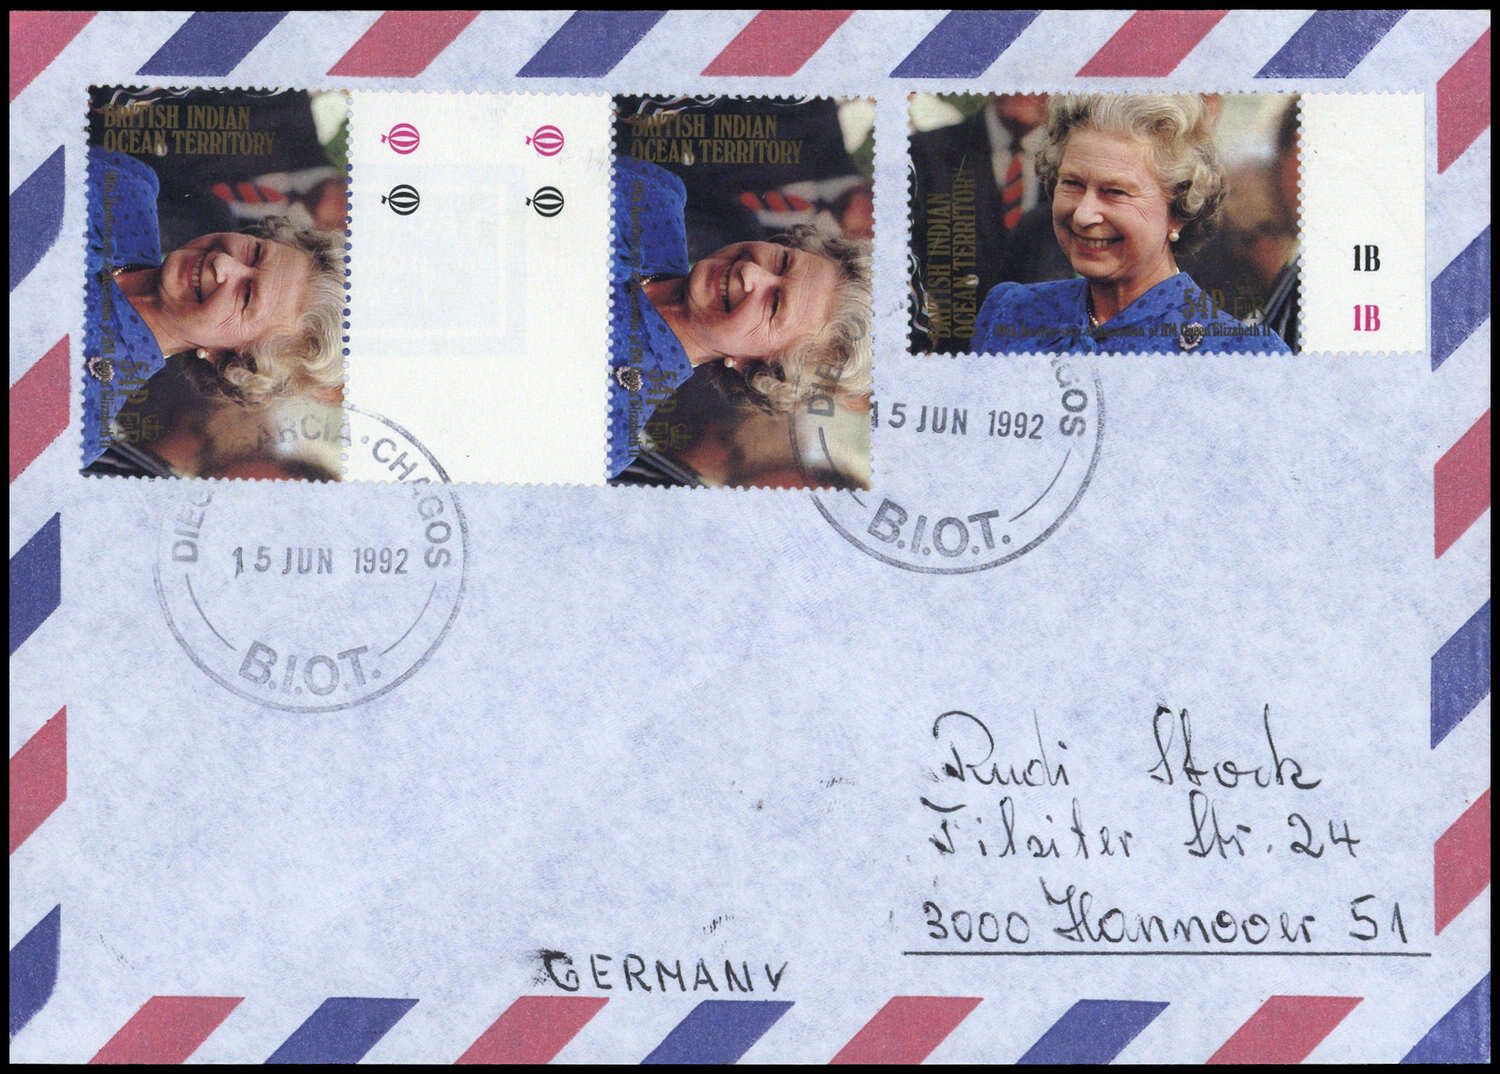 BRITISH INDIAN
OCEAN TERRITORY
54P
BRITISH INDIAN
OCEAN TERRITORY
54P
BRITISH INDIAN
OCEAN TERRITORY
54P
of HM Queen Elizabeth II
1B
1B
DIEGO GARCIA · CHAGOS
15 JUN 1992
B.I.O.T.
15 JUN 1992
B.I.O.T.
Rudi Stock
Tilsiter Str. 24
3000 Hannover 51
GERMANY